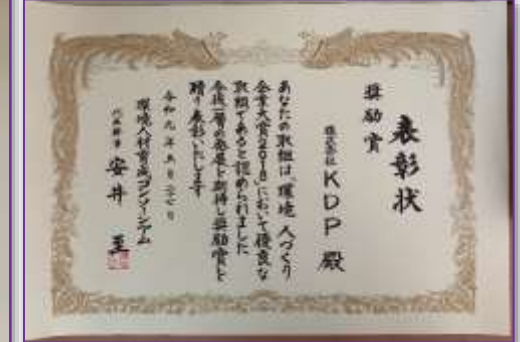 表彰状
奨励賞
株式会社 KDP 殿
あなたの取組は「環境 人づくり
企業大賞2018」において優良な
取組であると認められました
今後一層の発展を期待し奨励賞を
贈り表彰いたします
令和元年五月
環境人材育成コンソーシアム
代表幹事 安井 至